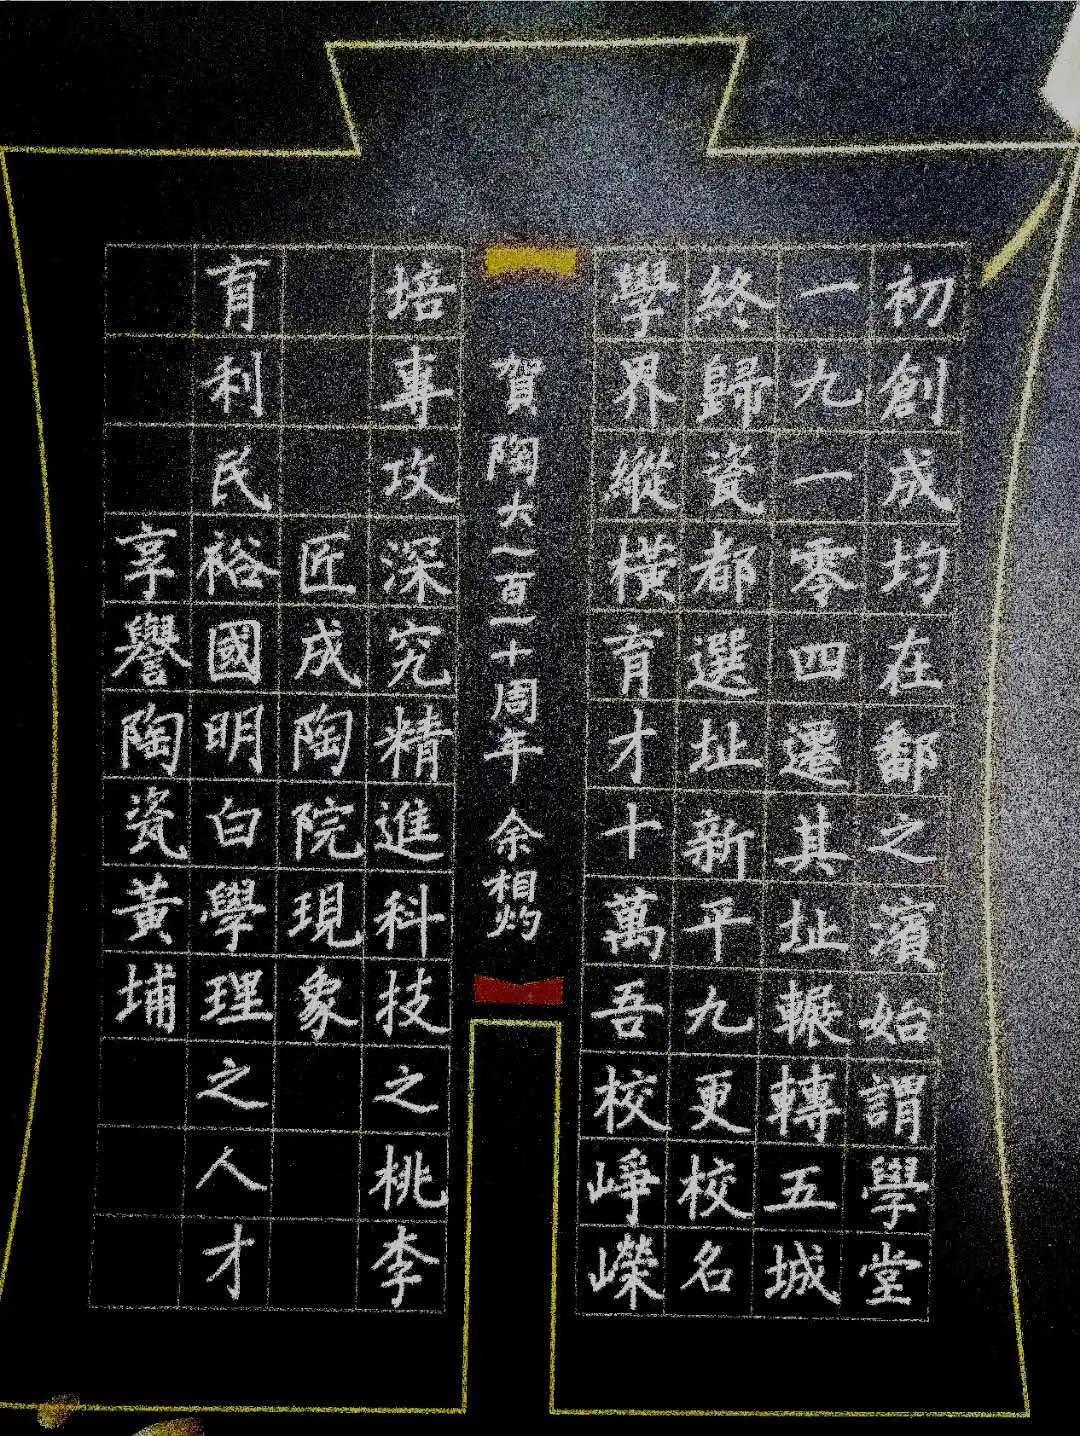 初創成均在鄱之濱始謂學堂
一九一零四遷其址輾轉五城
終歸瓷都選址新平九更校名
學界縱橫育才十萬吾校崢嶸
賀陶大一百一十周年 余相灼
培專攻深究精進科技之桃李
匠成陶院現象
育利民裕國明白學理之人才
享譽陶瓷黃埔